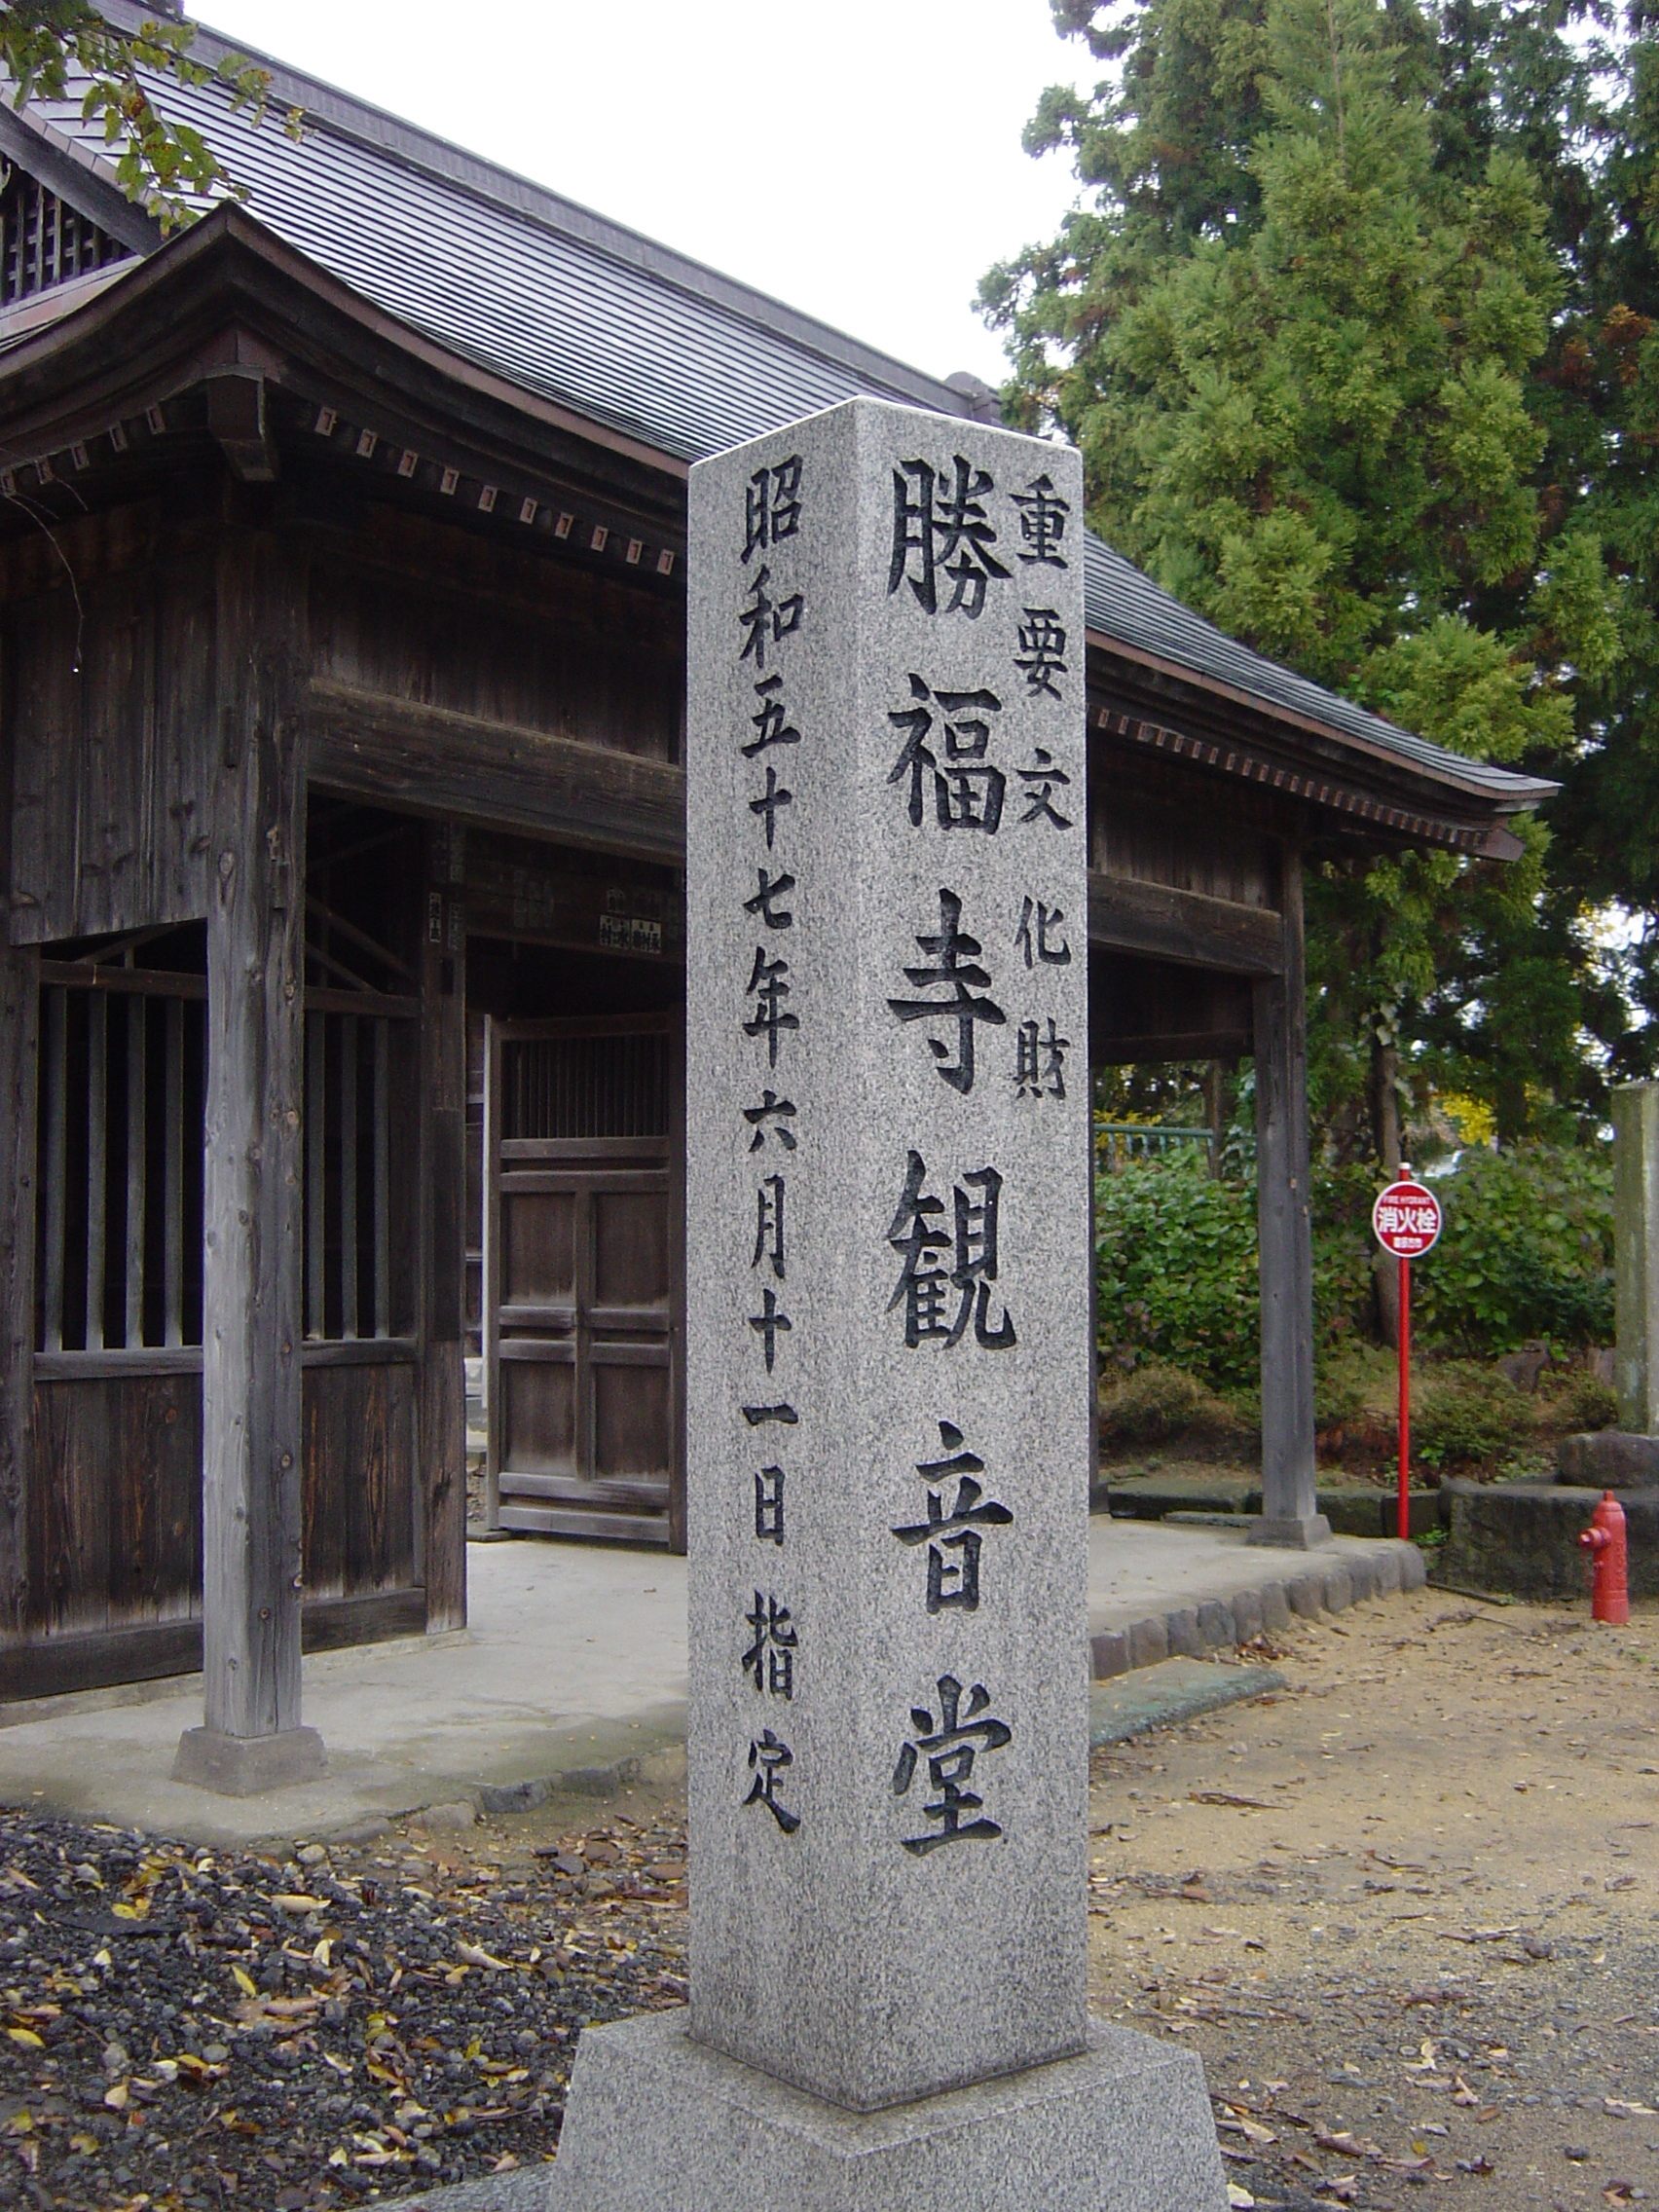 重要文化財
勝福寺観音堂
昭和五十七年六月十一日指定
FIRE HYDRANT
消火栓